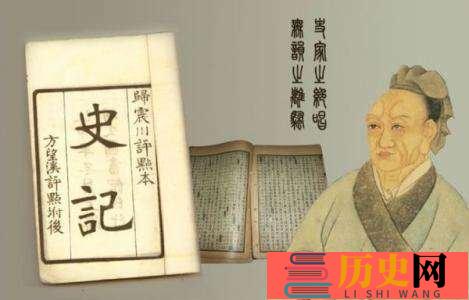 史家之絕唱
無韻之離騷
歸震川評點本
史記
方望溪評點附後
历史网
LI SHI WANG